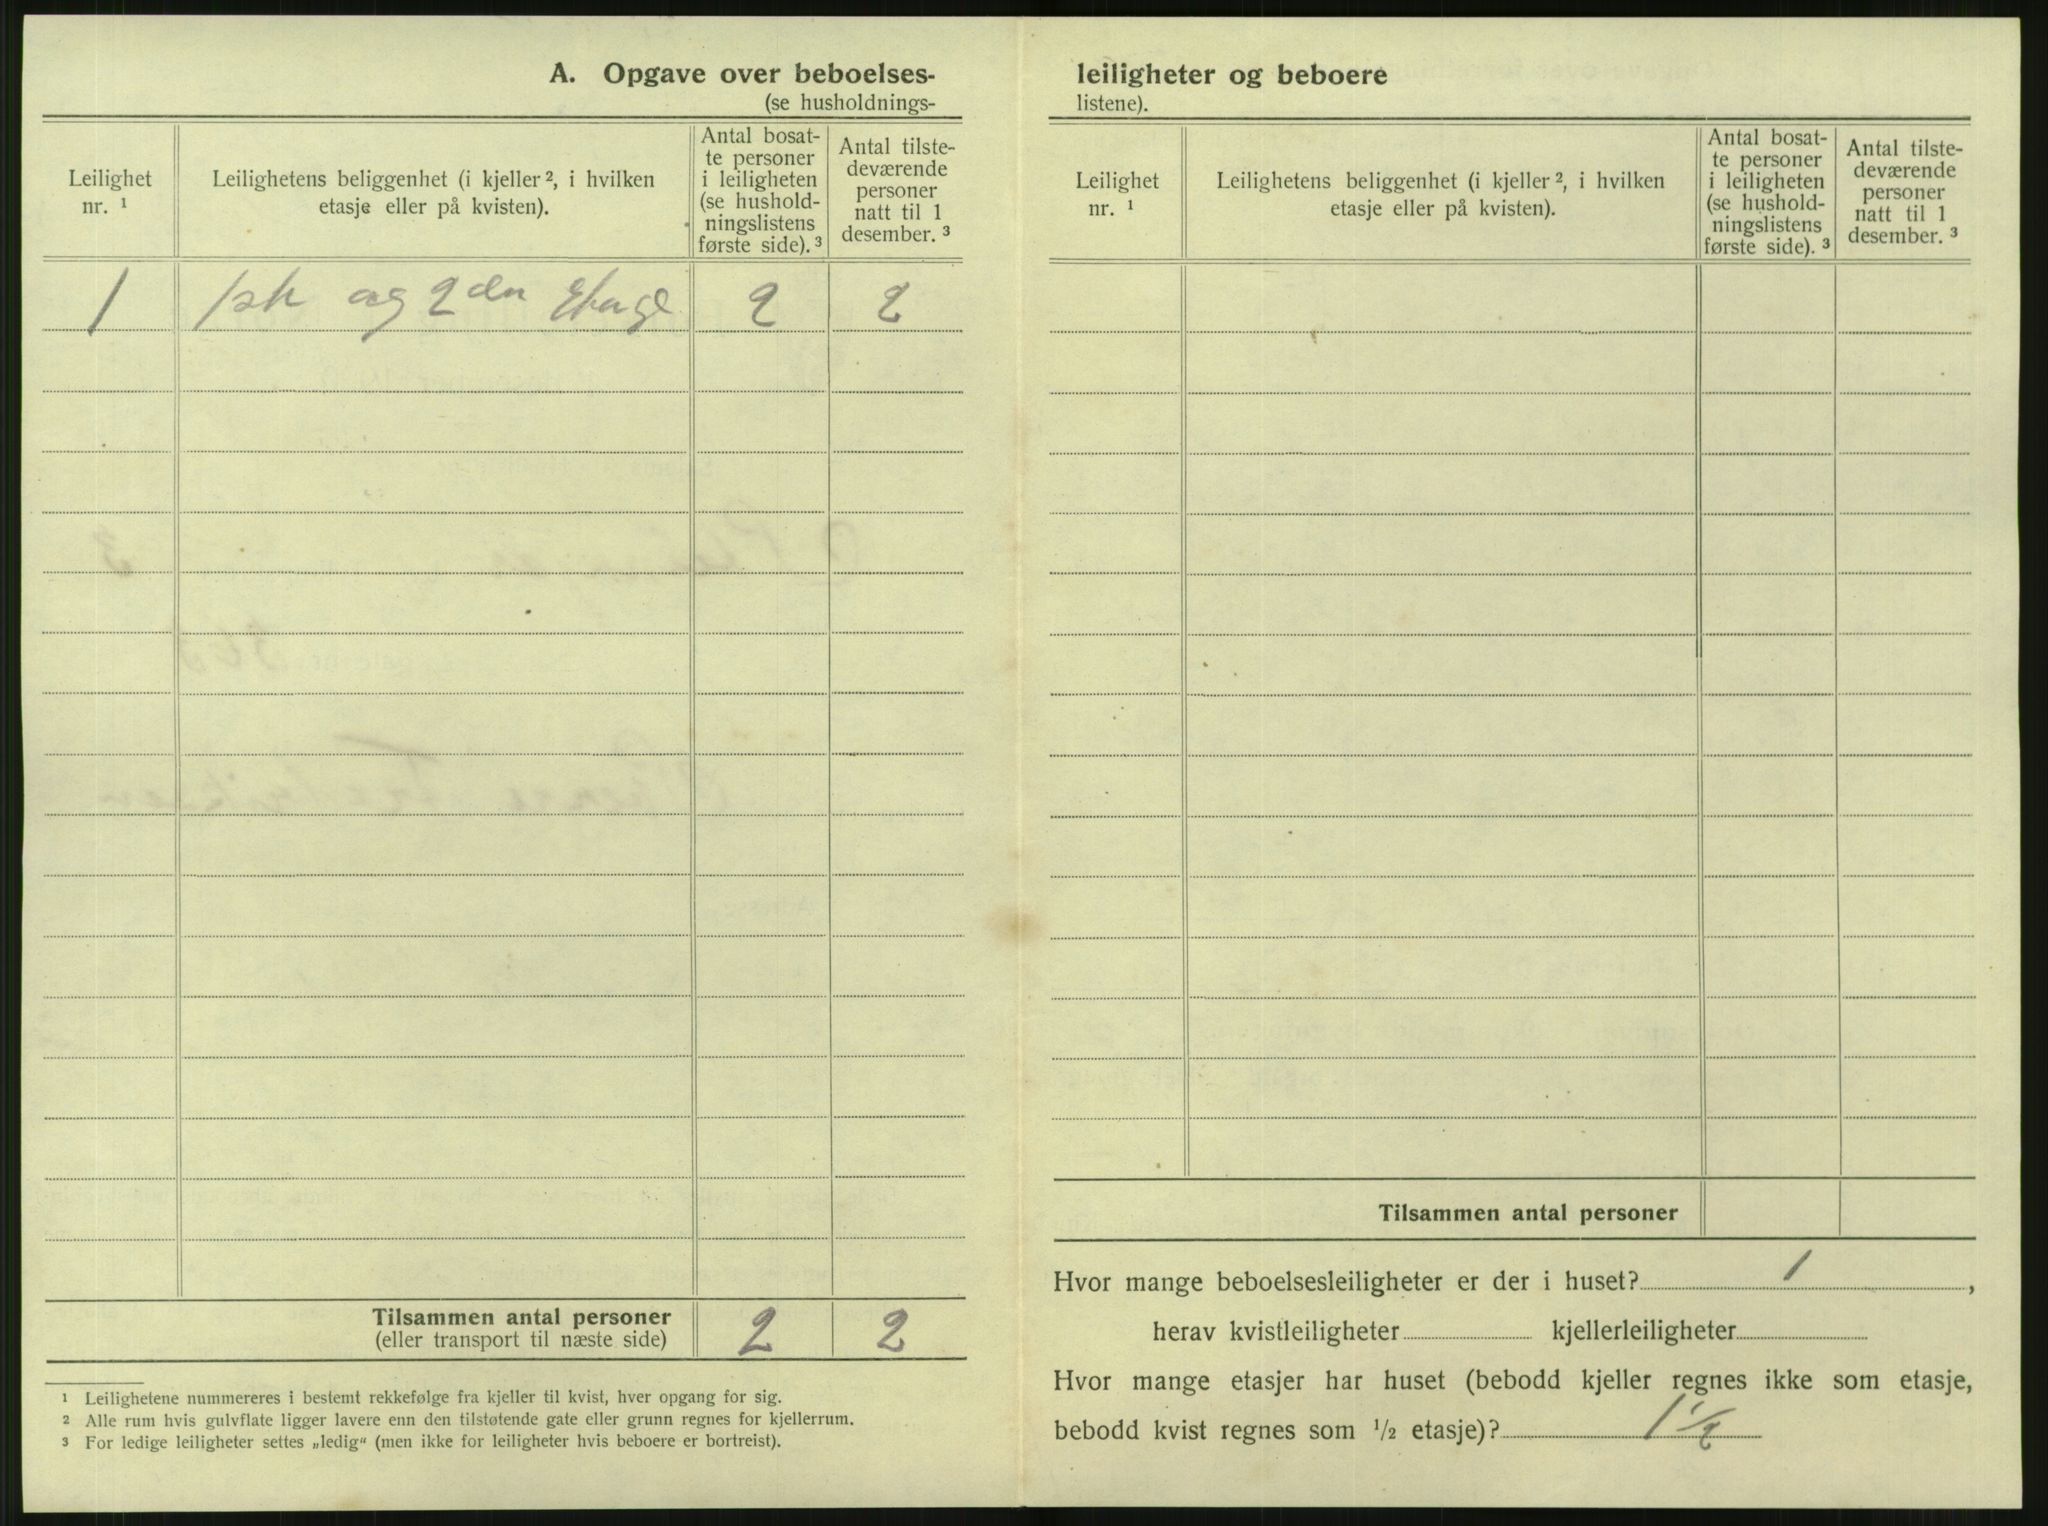 A. Opgave over beboelses-
(se husholdnings-
Leilighet
nr. ¹
Leilighetens beliggenhet (i kjeller ², i hvilken
etasje eller på kvisten).
Antal bosat-
te personer
i leiligheten
(se hushold-
ningslistens
første side). ³
Antal tilste-
deværende
personer
natt til 1
desember. ³
1 1ste og 2den Etage 2 2
Tilsammen antal personer 2 2
(eller transport til næste side)
¹ Leilighetene nummereres i bestemt rekkefølge fra kjeller til kvist, hver opgang for sig.
² Alle rum hvis gulvflate ligger lavere enn den tilstøtende gate eller grunn regnes for kjellerrum.
³ For ledige leiligheter settes „ledig" (men ikke for leiligheter hvis beboere er bortreist).
leiligheter og beboere
listene).
Leilighet
nr. ¹
Leilighetens beliggenhet (i kjeller ², i hvilken
etasje eller på kvisten).
Antal bosat-
te personer
i leiligheten
(se hushold-
ningslistens
første side). ³
Antal tilste-
deværende
personer
natt til 1
desember. ³
Tilsammen antal personer
Hvor mange beboelsesleiligheter er der i huset? 1 ,
herav kvistleiligheter kjellerleiligheter
Hvor mange etasjer har huset (bebodd kjeller regnes ikke som etasje,
bebodd kvist regnes som ½ etasje)? 1½